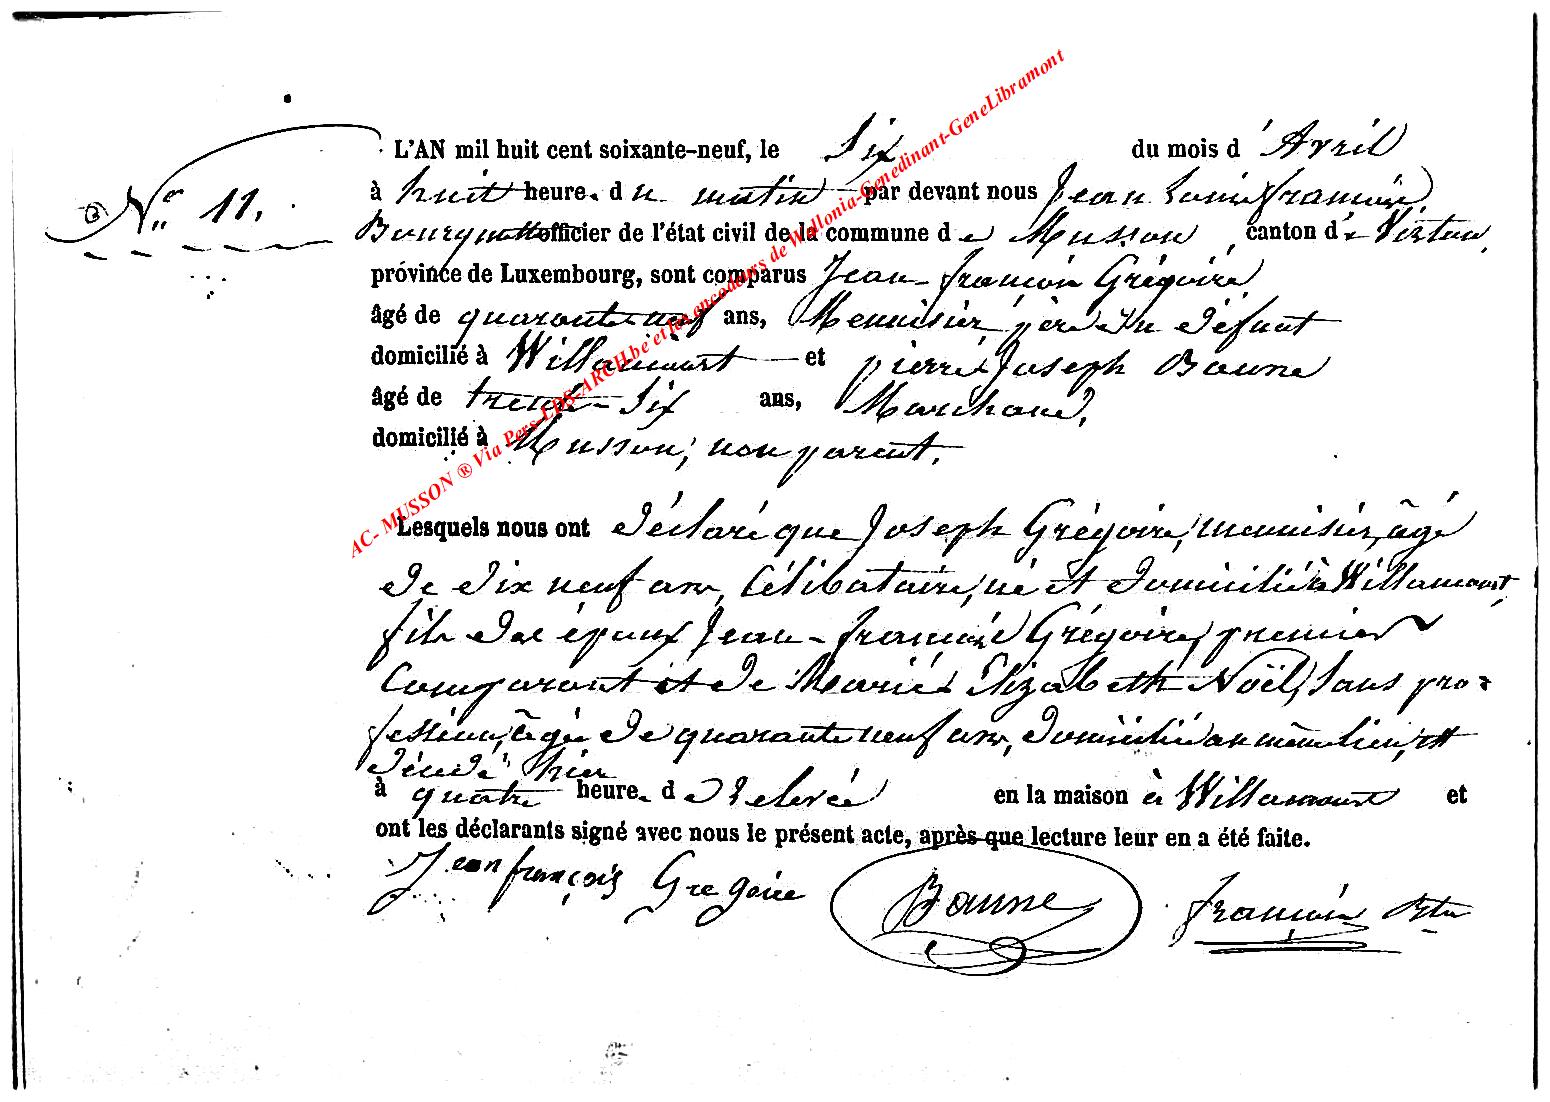 L'AN mil huit cent soixante-neuf, le Six du mois d'Avril
N° 11.
à huit heures du matin par devant nous Jean Louis François
officier de l'état civil de la commune de Musson, canton de Virton,
province de Luxembourg, sont comparus Jean-François Grégoire
âgé de quarante neuf ans, Menuisier, père du défunt
domicilié à Willancourt et pierre Joseph Baune
âgé de trente-Six ans, Marchand,
domicilié à Musson, non parent.
Lesquels nous ont déclaré que Joseph Grégoire, menuisier, âgé
de dix neuf ans, Célibataire, né et domicilié à Willancourt,
fils des époux Jean-françois Grégoire, premier
Comparant et de Marie Elizabeth Noël, Sans pro-
fession, âgée de quarante neuf ans, domiciliée au même lieu, est
décédé hier
à quatre heures de relevée en la maison à Willancourt et
ont les déclarants signé avec nous le présent acte, après que lecture leur en a été faite.
Jean françois Gregoire Baune françois
AC- MUSSON ® Via Pers-LDS-ARCH.be et les encodeurs de Wallonia-Genedinant-GeneLibramont